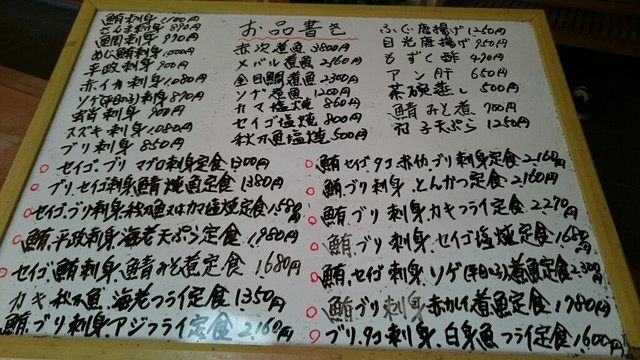 お品書き
鮪刺身 1,100円
さんま刺身 890円
鯛刺身 990円
めじ鮪刺身 1,000円
平政刺身 900円
赤イカ刺身 1,080円
ソゲ(平目小)刺身 870円
刺身 900円
スズキ刺身 1,080円
ブリ刺身 850円
赤次煮魚 3800円
メバル煮魚 2,160円
金目鯛煮魚 2,300円
ソゲ煮魚 1200円
カマ塩焼 860円
セイゴ塩焼 800円
秋刀魚塩焼 500円
ふぐ唐揚げ 1250円
目光唐揚げ 950円
もずく酢 490円
アン肝 650円
茶碗蒸し 500円
鯖みそ煮 700円
天ぷら 1250円
セイゴ、ブリ マグロ刺身定食 1300円
ブリ、セイゴ刺身、鯖焼魚定食 1380円
セイゴ、ブリ刺身、秋刀魚又はカマ塩焼定食 1,580円
鮪、平政刺身、海老天ぷら定食 1,980円
セイゴ、鮪刺身、鯖みそ煮定食 1,680円
カキ、秋刀魚、海老フライ定食 1,350円
鮪、ブリ刺身、アジフライ定食 2,160円
鮪、セイゴ、タコ、赤イカ、ブリ刺身定食 2,160円
鮪、ブリ刺身、とんかつ定食 2,160円
鮪、ブリ刺身、カキフライ定食 2,270円
鮪、ブリ刺身、セイゴ塩焼定食 1,680円
鮪、セイゴ刺身、ソゲ(平目小)煮魚定食 2,300円
鮪、ブリ刺身、赤カレイ煮魚定食 1,980円
ブリ、タコ刺身、白身魚フライ定食 1,600円